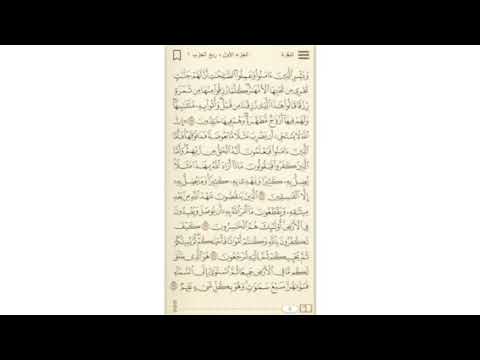 البقرة
الجزء الأول ، ربع الحزب ١
وَبَشِّرِ ٱلَّذِينَ ءَامَنُوا۟ وَعَمِلُوا۟ ٱلصَّٰلِحَٰتِ أَنَّ لَهُمْ جَنَّٰتٍ
تَجْرِى مِن تَحْتِهَا ٱلْأَنْهَٰرُ كُلَّمَا رُزِقُوا۟ مِنْهَا مِن ثَمَرَةٍ
رِّزْقًا قَالُوا۟ هَٰذَا ٱلَّذِى رُزِقْنَا مِن قَبْلُ وَأُتُوا۟ بِهِۦ مُتَشَٰبِهًا
وَلَهُمْ فِيهَآ أَزْوَٰجٌ مُّطَهَّرَةٌ وَهُمْ فِيهَا خَٰلِدُونَ ٢٥ إِنَّ
ٱللَّهَ لَا يَسْتَحْىِۦٓ أَن يَضْرِبَ مَثَلًا مَّا بَعُوضَةً فَمَا فَوْقَهَا فَأَمَّا
ٱلَّذِينَ ءَامَنُوا۟ فَيَعْلَمُونَ أَنَّهُ ٱلْحَقُّ مِن رَّبِّهِمْ وَأَمَّا
ٱلَّذِينَ كَفَرُوا۟ فَيَقُولُونَ مَاذَآ أَرَادَ ٱللَّهُ بِهَٰذَا مَثَلًا
يُضِلُّ بِهِۦ كَثِيرًا وَيَهْدِى بِهِۦ كَثِيرًا وَمَا يُضِلُّ بِهِۦٓ
إِلَّا ٱلْفَٰسِقِينَ ٢٦ ٱلَّذِينَ يَنقُضُونَ عَهْدَ ٱللَّهِ مِنۢ بَعْدِ
مِيثَٰقِهِۦ وَيَقْطَعُونَ مَآ أَمَرَ ٱللَّهُ بِهِۦٓ أَن يُوصَلَ وَيُفْسِدُونَ
فِى ٱلْأَرْضِ أُو۟لَٰٓئِكَ هُمُ ٱلْخَٰسِرُونَ ٢٧ كَيْفَ
تَكْفُرُونَ بِٱللَّهِ وَكُنتُمْ أَمْوَٰتًا فَأَحْيَٰكُمْ ثُمَّ يُمِيتُكُمْ
ثُمَّ يُحْيِيكُمْ ثُمَّ إِلَيْهِ تُرْجَعُونَ ٢٨ هُوَ ٱلَّذِى خَلَقَ
لَكُم مَّا فِى ٱلْأَرْضِ جَمِيعًا ثُمَّ ٱسْتَوَىٰٓ إِلَى ٱلسَّمَآءِ
فَسَوَّىٰهُنَّ سَبْعَ سَمَٰوَٰتٍ وَهُوَ بِكُلِّ شَىْءٍ عَلِيمٌ ٢٩
٥